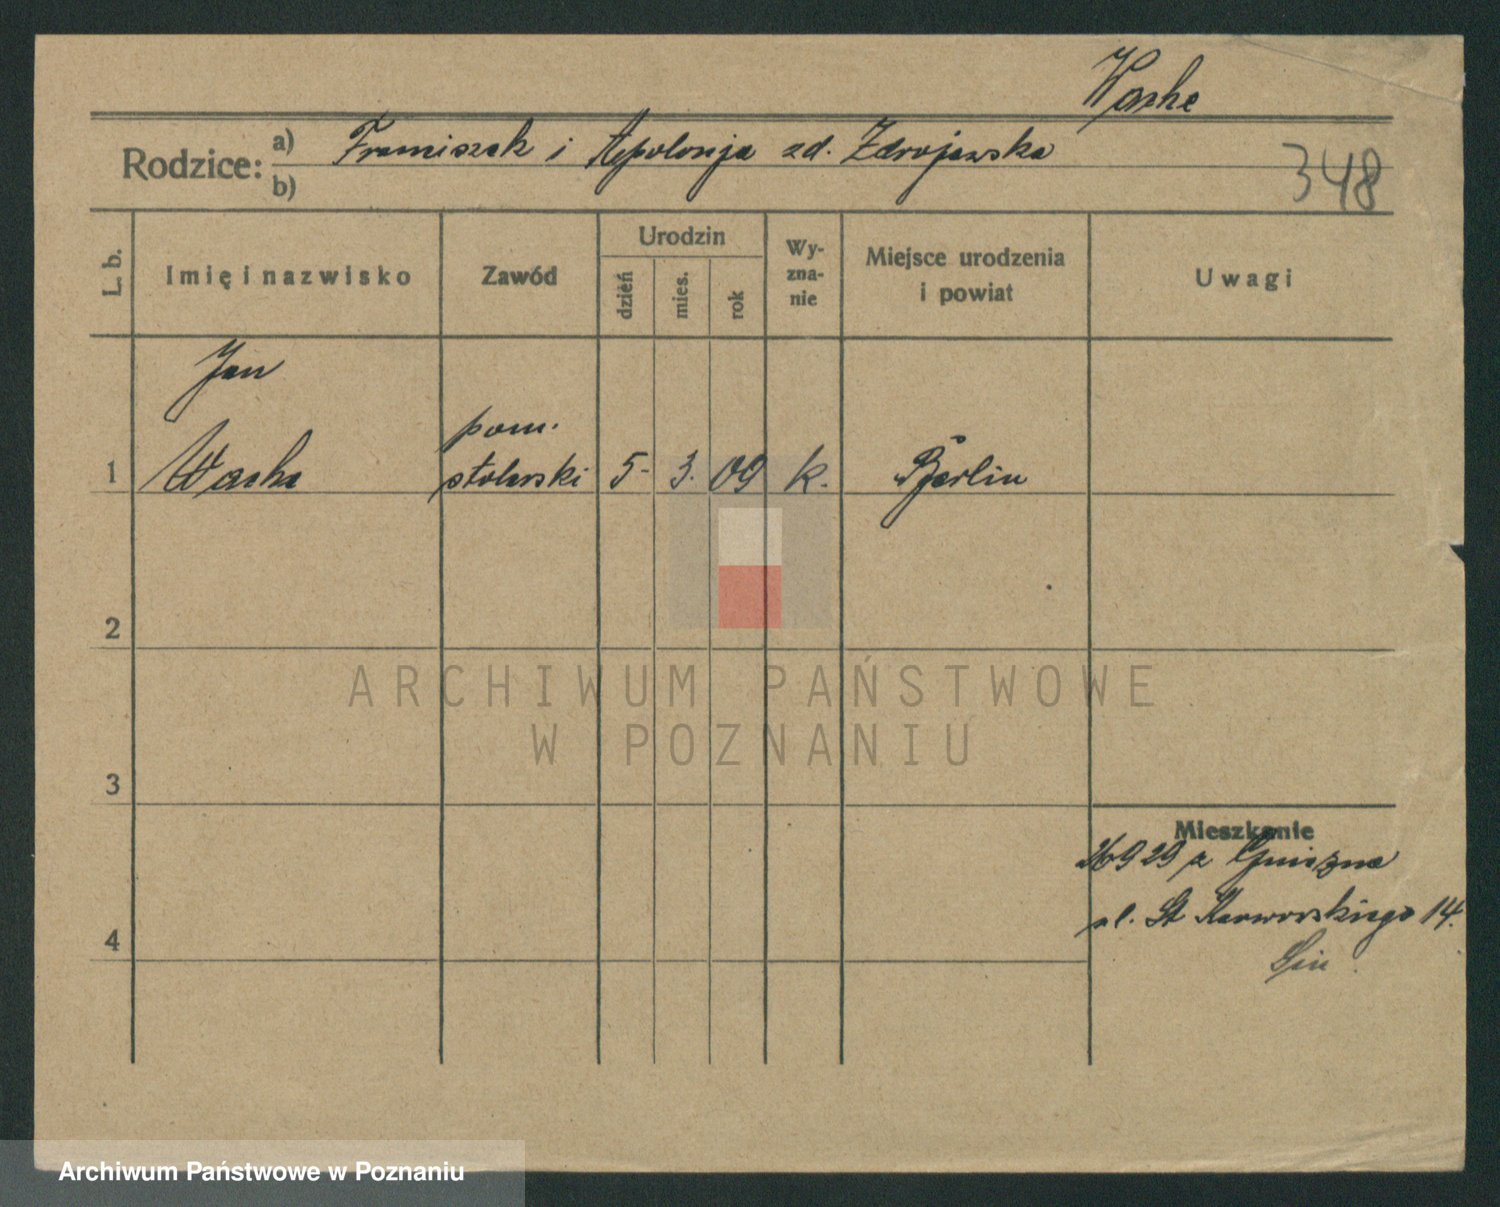 Waske
Rodzice:
a) Franciszek i Apolonja zd. Zdrojewska
b)
348
L. b.
Imię i nazwisko
Zawód
Urodzin
dzień
mies.
rok
Wy-
zna-
nie
Miejsce urodzenia
i powiat
Uwagi
Jan
pom.
1 Waske stolarski 5. 3. 09 k. Berlin
2
ARCHIWUM PAŃSTWOWE
W POZNANIU
3
Mieszkanie
26 9 29 z Gniezna
ul. St Karwowskiego 14.
4
Archiwum Państwowe w Poznaniu